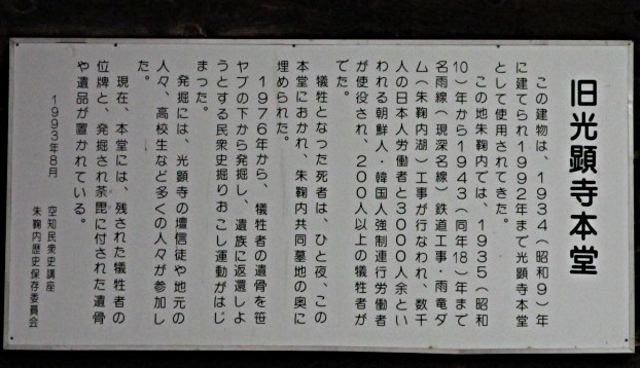 旧光顕寺本堂
この建物は、1934（昭和9）年
に建てられ1992年まで光顕寺本堂
として使用されてきた。
この地朱鞠内では、1935（昭和
10）年から1943（同年18）年まで
名雨線（現深名線）鉄道工事・雨竜ダ
ム（朱鞠内湖）工事が行なわれ、数千
人の日本人労働者と3000人余とい
われる朝鮮人・韓国人強制連行労働者
が使役され、200人以上の犠牲者が
でた。
犠牲となった死者は、ひと夜、この
本堂におかれ、朱鞠内共同墓地の奥に
埋められた。
1976年から、犠牲者の遺骨を笹
ヤブの下から発掘し、遺族に返還しよ
うとする民衆史掘りおこし運動がはじ
まった。
発掘には、光顕寺の壇信徒や地元の
人々、高校生など多くの人々が参加し
た。
現在、本堂には、残された犠牲者の
位牌と、発掘され荼毘に付された遺骨
や遺品が置かれている。
1993年8月
空知民衆史講座
朱鞠内歴史保存委員会